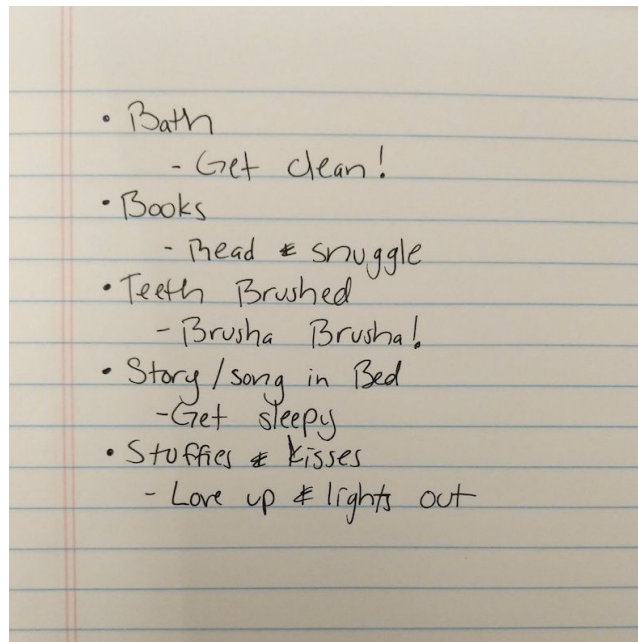 • Bath
- Get clean!
• Books
- Read & snuggle
• Teeth Brushed
- Brusha Brusha!
• Story/song in Bed
-Get sleepy
• Stuffies & kisses
- Love up & lights out